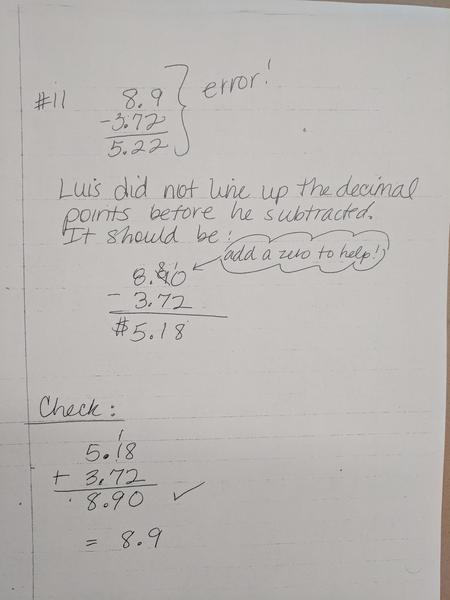 #11 8.9 } error!
-3.72
5.22
Luis did not line up the decimal
points before he subtracted.
It should be:
add a zero to help!
8 1
8.90
- 3.72
$5.18
Check:
1
5.18
+ 3.72
8.90 ✓
= 8.9